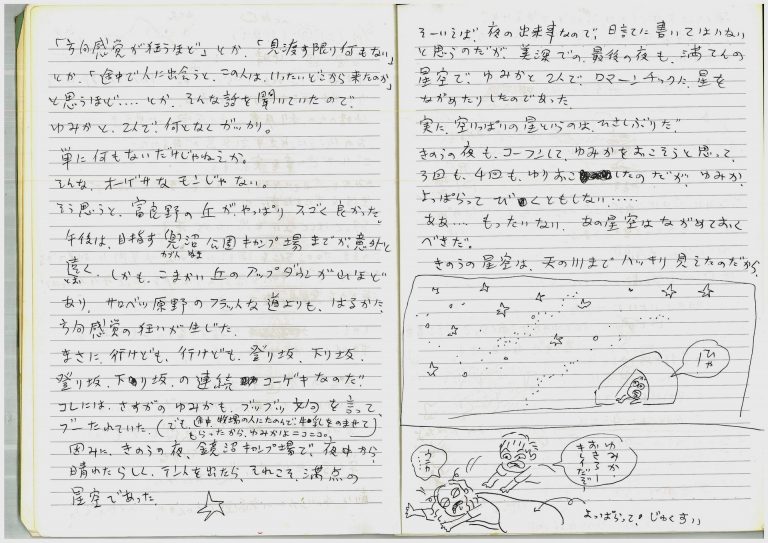 「方向感覚が狂うほど」とか、「見渡す限り何もない」
とか、「途中で人に出会うと、この人は、いったいどこから来たのか」
と思うほど‥‥とか、そんな話を聞いていたので、
ゆみかと、2人で何となくガッカリ。
単に何もないだけじゃねェか。
そんな、オーゲサなもンじゃない。
そう思うと、富良野の丘が、やっぱりスゴく良かった。
午後は、目指す兜沼公園キャンプ場までが意外と
かぶと ぬま
遠く、しかも、こまかい丘のアップダウンが山ほど
とお
あり、サロベツ原野のフラットな道よりも、はるかに、
方向感覚の狂いが生じた。
まさに、行けども、行けども、登り坂、下り坂、
登り坂、下り坂、の連続コーゲキなのだ
コレには、さすがのゆみかも、ブツブツ文句を言って、
ブーたれていた。(でも途中牧場の人にたのんで、牛乳をのませて
もらったから、ゆみかはニコニコ。)
因みに、きのうの夜、鏡沼キャンプ場で、夜中から
晴れたらしく、テントを出たら、それこそ、満点の
星空であった。
そーいえば、夜の出来事なので、日記に書いてはいない
と思うのだが、美深での、最後の夜も、満てんの
星空で、ゆみかと2人で、ロマーンチックに、星を
ながめたりしたのであった。
実に、空いっぱいの星というのは、ひさしぶりだ。
きのうの夜も、コーフンして、ゆみかをおこそうと思って、
3回も、4回も、ゆりおこしたのだが、ゆみか、
よっぱらってびくともしない‥‥‥
ああ‥‥もったいない、あの星空はながめておく
べきだ。
きのうの星空は、天の川までハッキリ見えたのだから。
ひゃー
ゆみか、
おきろー
キレイだぞ
よっぱらって!じゅくすい